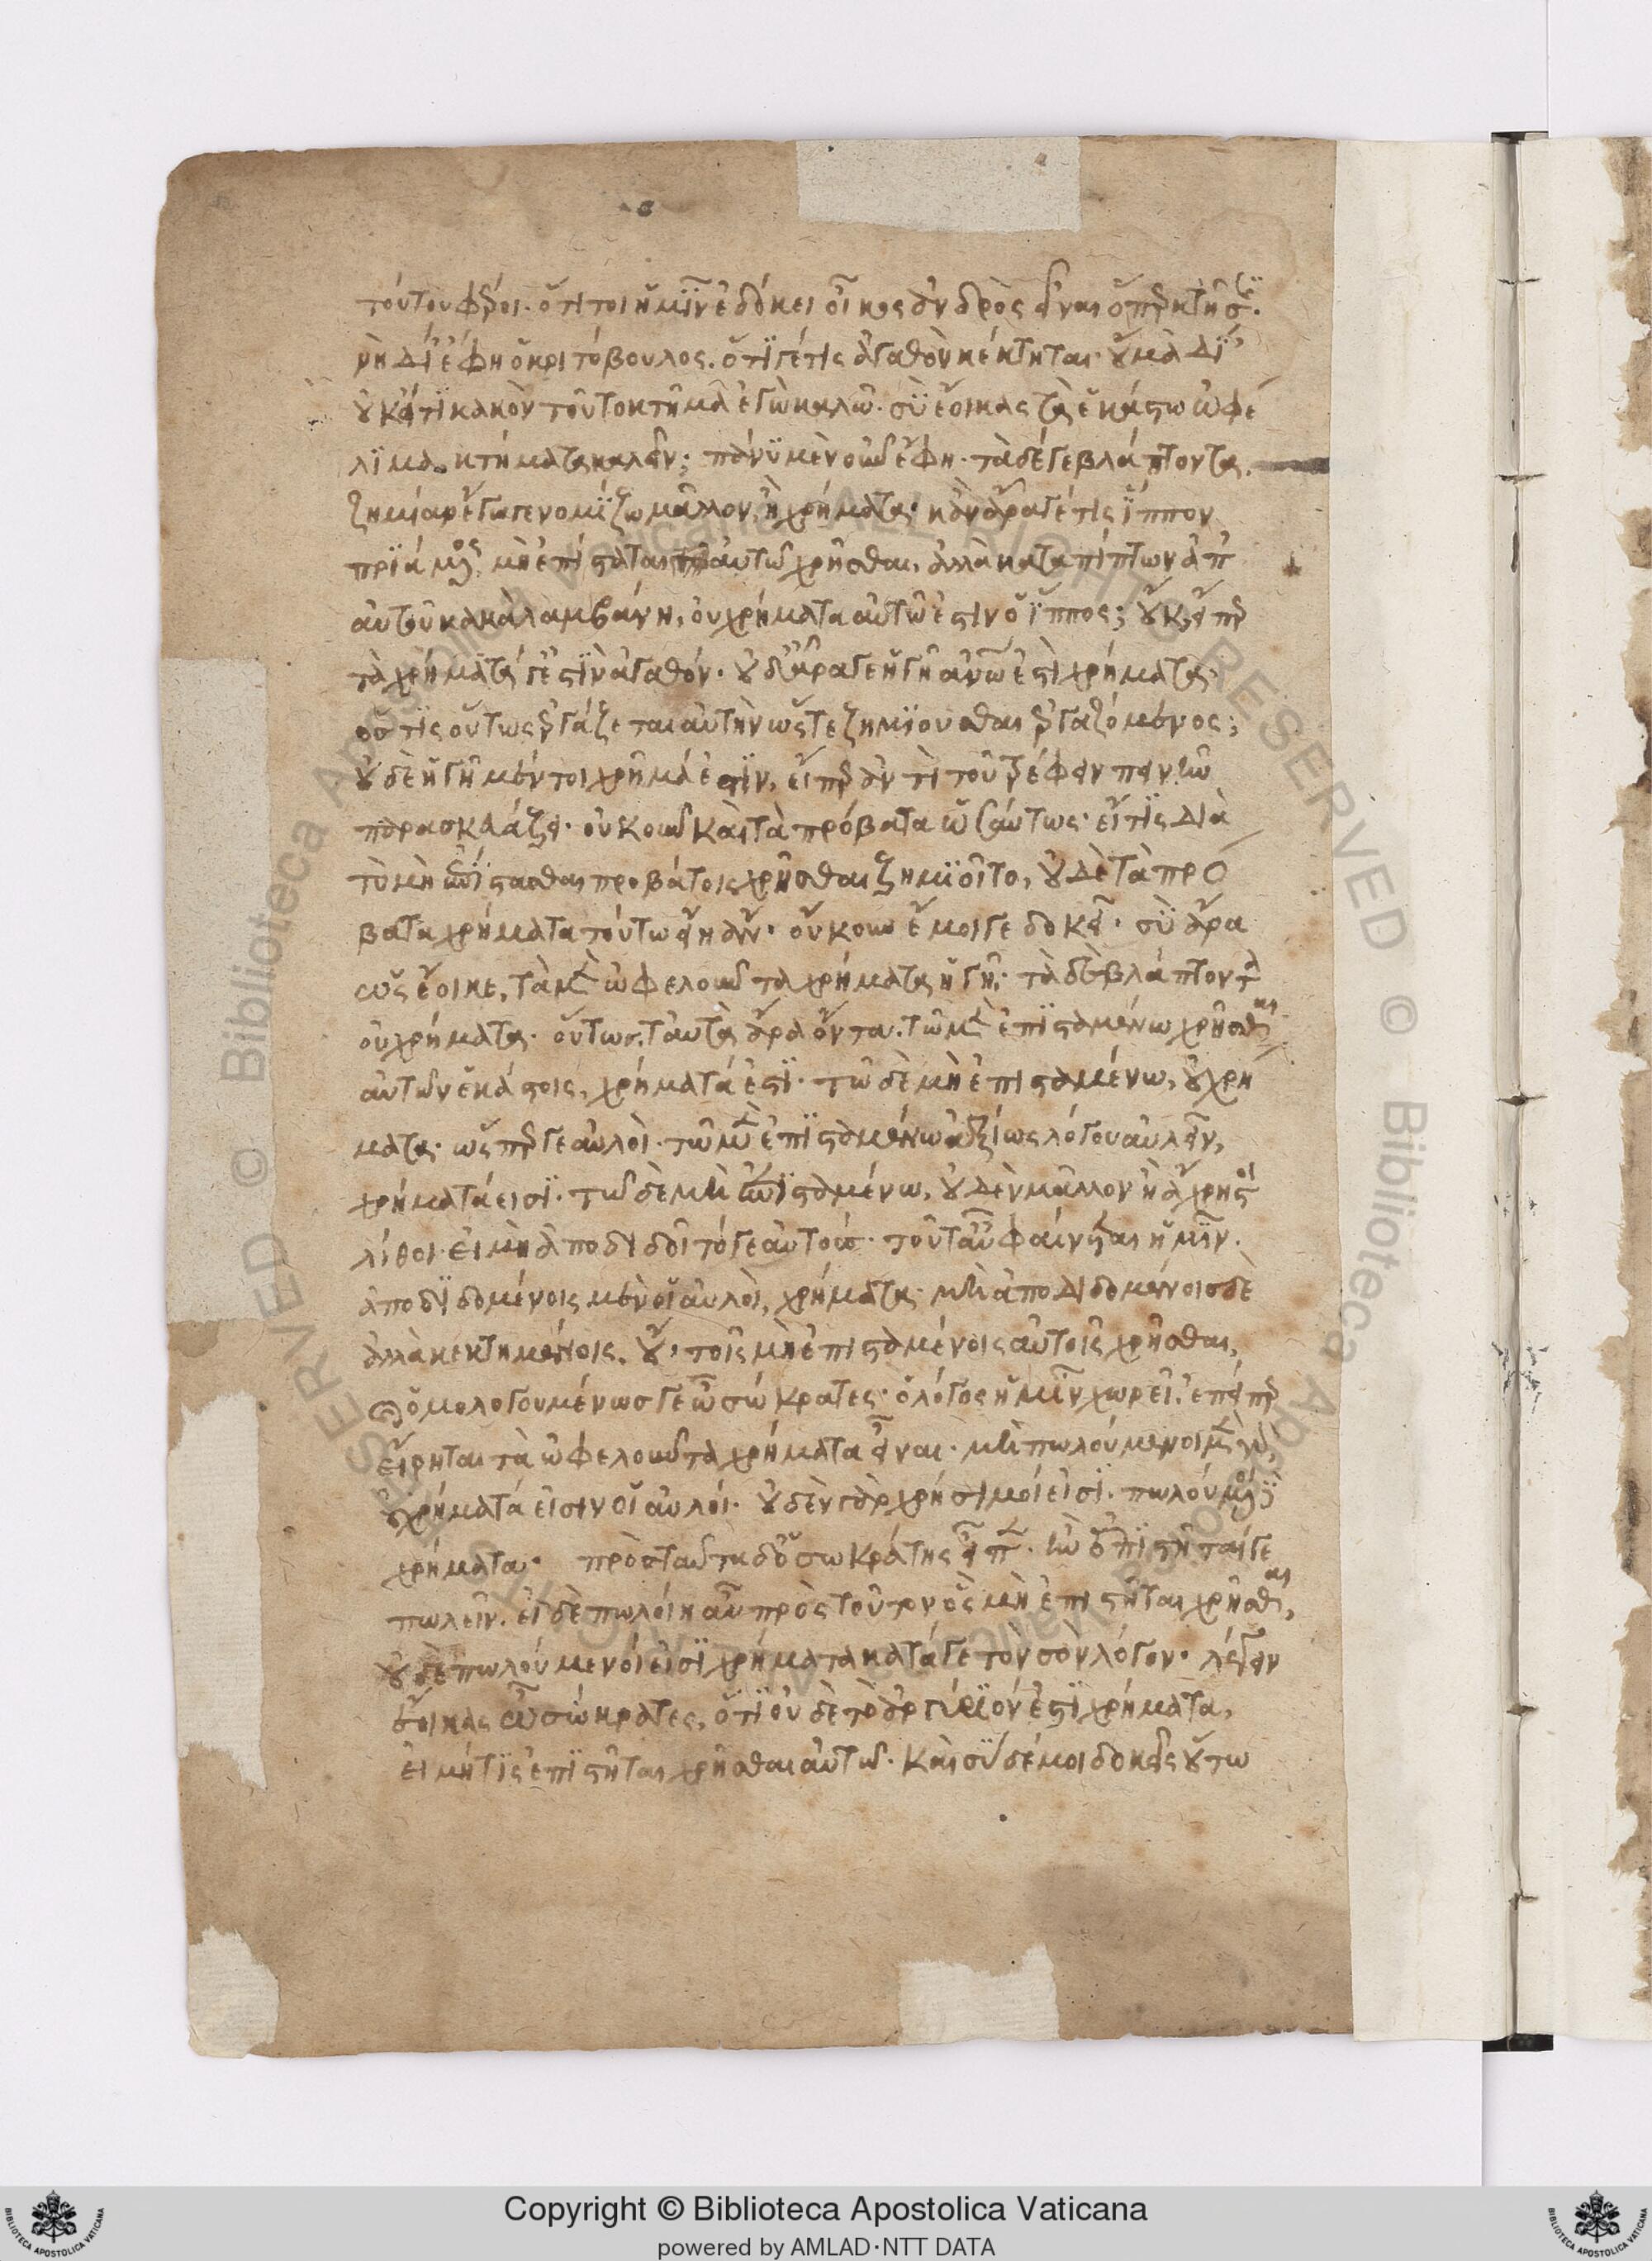 τούτου φέροι. ὅτι τοι ἡμῖν ἐδόκει οἶκος ἀνδρὸς εἶναι ὅπερ κτῆσις.
νὴ Δί' ἔφη ὁ κριτόβουλος. ὅτι γέ τις ἀγαθὸν κέκτηται· οὐ μὰ Δί'
οὐκ εἴ τι κακὸν τοῦτο κτῆμα ἐγὼ καλῶ. σὺ ἔοικας τὰ ἑκάστω ὠφέ
λιμα κτήματα καλεῖν; πάνυ μὲν οὖν ἔφη. τὰ δέ γε βλάπτοντα.
ζημίαν ἔγωγε νομίζω μᾶλλον, ἢ χρήματα· κἂν ἄρα γέ τις ἵππον
πριάμενος μὴ ἐπίσταται αὐτῶ χρῆσθαι, ἀλλὰ καταπίπτων ἀπ'
αὐτοῦ κακὰ λαμβάνη, οὐ χρήματα αὐτῶ ἐστιν ὁ ἵππος; οὔκ, εἴπερ
τὰ χρήματά γ' ἐστὶν ἀγαθόν. οὐδ' ἄρα γε ἡ γῆ ἀνῶ ἐστὶ χρήματα.
ὅστις οὕτως ἐργάζεται αὐτὴν ὥστε ζημιοῦσθαι ἐργαζόμενος;
οὐδὲ ἡ γῆ μέντοι χρῆμά ἐστιν, εἴπερ ἀντὶ τοῦ τρέφειν πεινῆν
παρασκευάζει. οὐκοῦν καὶ τὰ πρόβατα ὡσαύτως· εἴ τις διὰ
τὸ μὴ ἐπίστασθαι προβάτοις χρῆσθαι ζημιοῖτο, οὐδὲ τὰ πρό
βατα χρήματα τούτω εἴη ἄν. οὔκουν ἔμοιγε δοκεῖ. σὺ ἄρα
ὡς ἔοικε, τὰ μὲν ὠφελοῦντα χρήματα ἡγῆ· τὰ δὲ βλάπτοντα
οὐ χρήματα. οὕτως. ταὐτὰ ἄρα ὄντα. τῶ μὲν ἐπισταμένω χρῆσθαι
αὐτῶν ἑκάστοις, χρήματά ἐστι. τῶ δὲ μὴ ἐπισταμένω, οὐ χρή
ματα· ὥσπερ γε αὐλοὶ. τῶ μὲν ἐπισταμένω ἀξίως λόγου αὐλεῖν,
χρήματά εισι. τῶ δὲ μὴ ἐπισταμένω, οὐδὲν μᾶλλον ἢ ἄχρηστοι
λίθοι. εἰ μὴ ἀποδιδοῖτό γε αὐτούς. τοῦτ' αὖ φαίνεται ἡμῖν.
ἀποδιδομένοις μὲν οἱ αὐλοὶ, χρήματα· μὴ ἀποδιδομένοις δὲ
ἀλλὰ κεκτημένοις. οὔ, τοῖς μὴ ἐπισταμένοις αὐτοῖς χρῆσθαι,
ὁμολογουμένως γε ὦ σώκρατες· ὁ λόγος ἡμῖν χωρεῖ. ἐπείπερ
εἴρηται τὰ ὠφελοῦντα χρήματα εἶναι. μὴ πωλούμενοι μὲν γὰρ
οὐ χρήματά εἰσιν οἱ αὐλοί. οὐδὲν γὰρ χρήσιμοί εἰσι. πωλούμενοι δὲ
χρήματα. πρὸς ταῦτα δ' ὁ σωκράτης εἶπεν. ἢν ἐπίστηταί γε
πωλεῖν. εἰ δὲ πωλοίη αὖ πρὸς τοῦτον ὃς μὴ ἐπίστηται χρῆσθαι,
οὐδὲ πωλούμενοί εἰσι χρήματα κατά γε τὸν σὸν λόγον. λέγειν
ἔοικας ὦ σώκρατες, ὅτι οὐδὲ τὸ ἀργύριόν ἐστι χρήματα,
εἰ μή τις ἐπίστηται χρῆσθαι αὐτῶ. καὶ σὺ δέ μοι δοκεῖς οὕτω
Copyright © Biblioteca Apostolica Vaticana
powered by AMLAD·NTT DATA